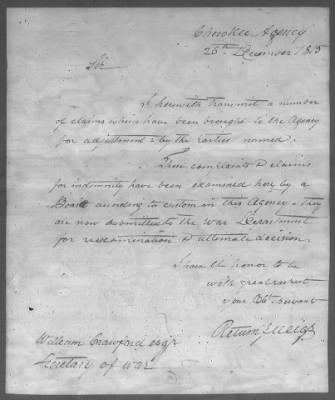 Cherokee Agency
26th December 1815
Sir
I herewith transmit a number
of claims which have been brought to the Agency
for adjustment & by the parties named.
These complaints & claims
for indemnity have been examined here by a
Board according to custom in this Agency - They
are now submitted to the War Department
for reexamination & ultimate decision.
I have the honor to be
with great respect
your Obt servant
Return J. Meigs
William Crawford esqr
Secretary of War